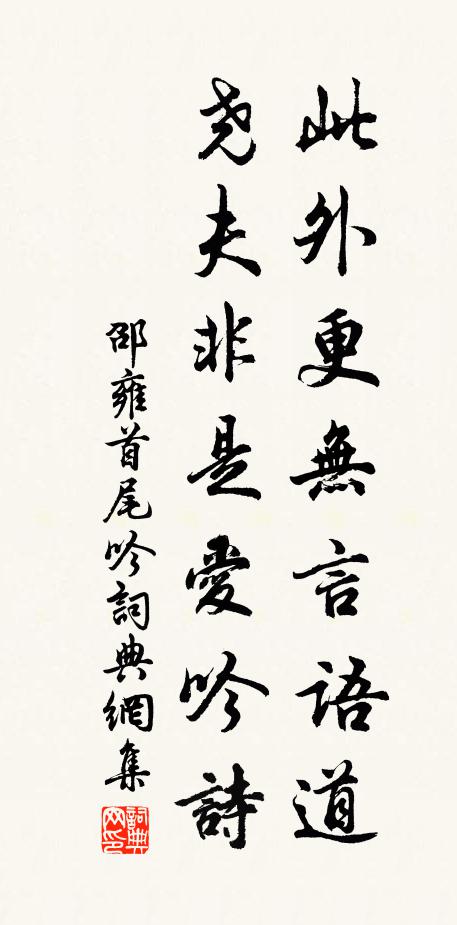 此外更無言語道
堯夫非是愛吟詩
邵雍首尾吟詞典網集
詞典網印